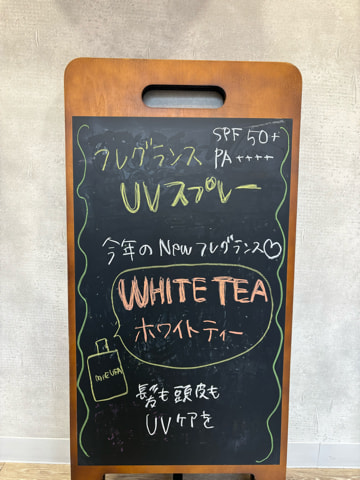 SPF 50+
PA ++++
フレグランス
UVスプレー
今年のNewフレグランス♡
WHITE TEA
ホワイトティー
髪も頭皮も
UVケアを